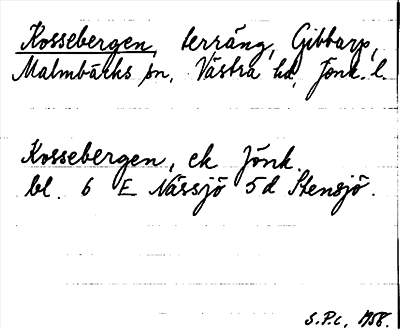 Kossebergen, terräng, Gibbarp,
Malmbäcks sn, Västra hd, Jönk. l.
Kossebergen, ek Jönk.
bl. 6 E Nässjö 5d Stensjö.
S.P.C. 1958.